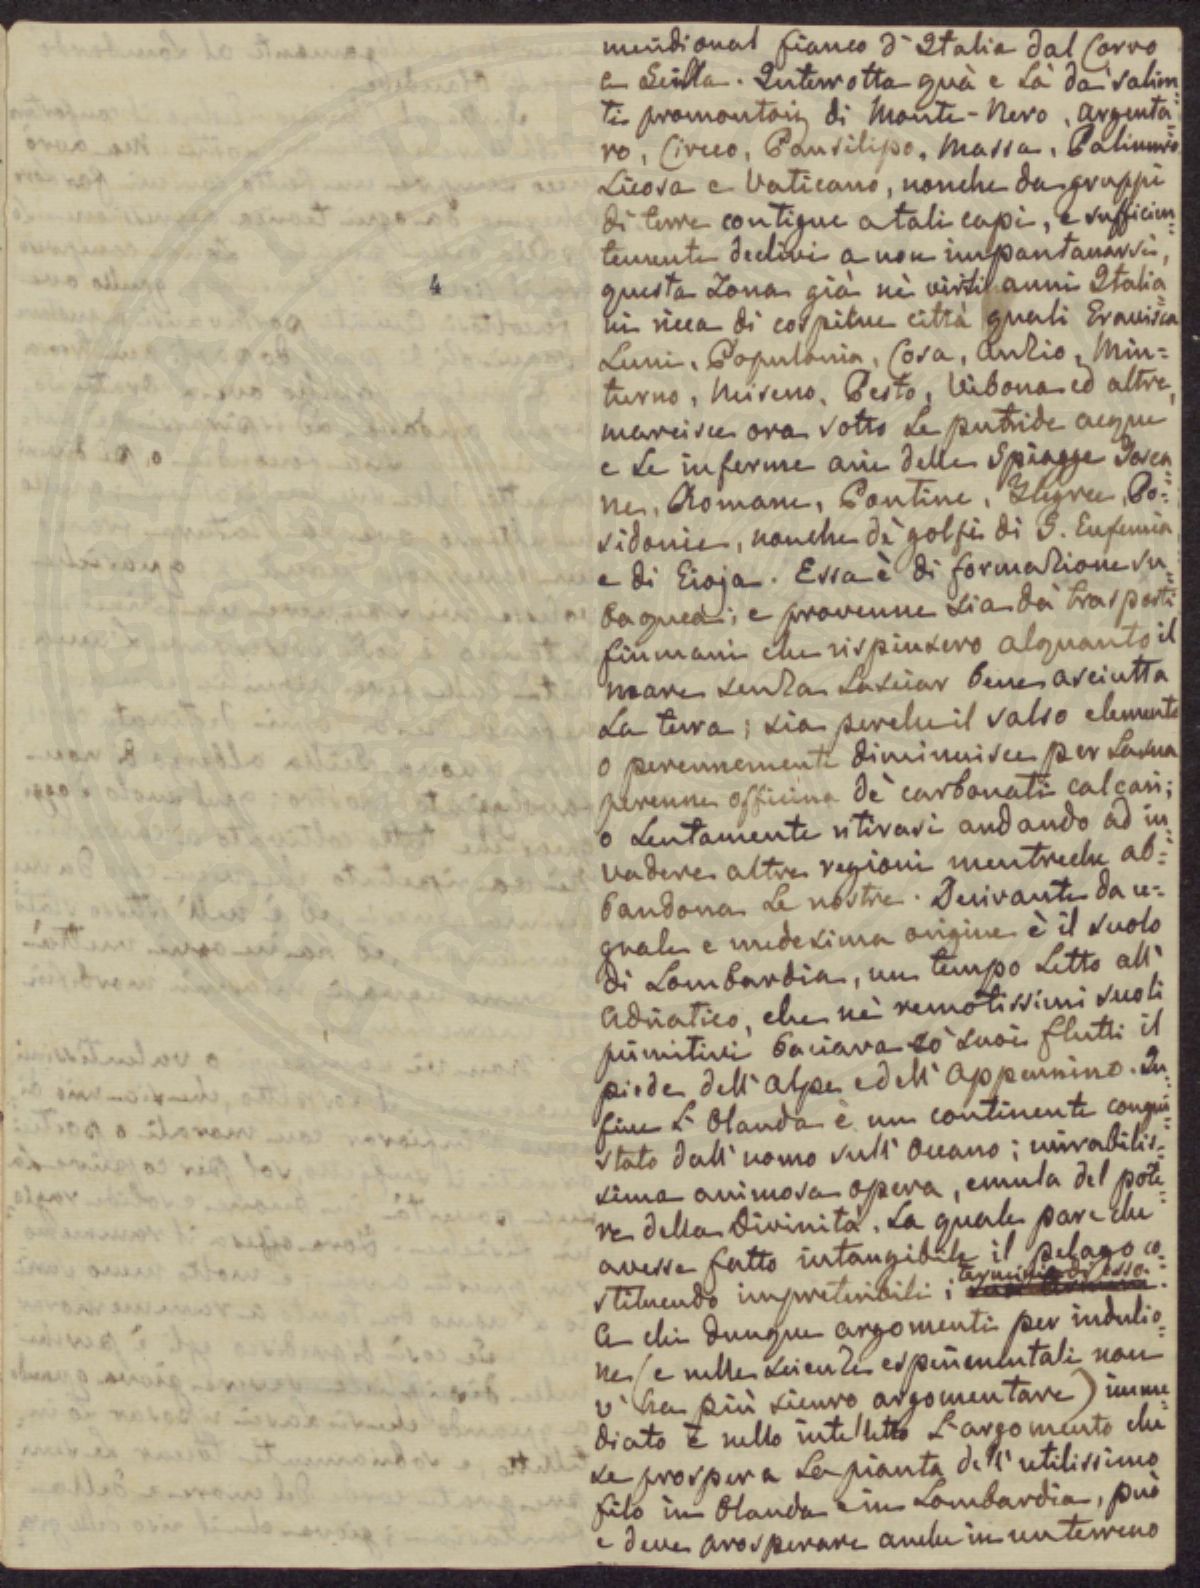 meridional fianco d'Italia dal Corvo
a Scilla. Interrotta quà e là da' salien=
ti promontorj di Monte-Nero, Argenta=
ro, Circeo, Pausilipo, Massa, Palinuro
Licosa e Vaticano, nonche da gruppi
di terre contigue a tali capi, e sufficien=
temente declivi a non impantanarsi,
questa Zona già nè virili anni Italia=
ni ricca di cospitue città quali
Luni, Populonia, Cosa, Anzio, Min=
turno, Miseno, Pesto, Vibona ed altre,
marcisce ora sotto le putride acque
e le inferme arie delle Spiagge Tosca=
ne, Romane, Pontine, Flegree, Po=
sidonie, nonche dè golfi di S. Eufemia
e di Gioja. Essa è di formazione su=
bacquea; e provenne sia dà trasporti
fiumani che rispinsero alquanto il
mare senza lasciar bene asciutta
la terra; sia perche il salso elemento
o perennemente diminuisce per la sua
perenne officina dè carbonati calcari;
o lentamente ritirasi andando ad in=
vadere altre regioni mentreche ab=
bandona le nostre. Derivante da e=
guale e medesima origine è il suolo
di Lombardia, un tempo letto all'
Adriatico, che nè remotissimi suoli
primitivi baciava cò suoi flutti il
piede dell'Alpe e dell'Appennino. In=
fine l'Olanda è un continente conqui=
stato dall'uomo sull'Oceano; mirabilis=
sima animosa opera, emula del pote=
re della Divinità. La quale pare che
avesse fatto intangibile il pelago co=
stituendo impreteribili i termini di esso.
A chi dunque argomenti per induzio=
ne (e nelle scienze esperimentali non
v'ha più sicuro argomentare) imme=
diato è nello intelletto l'argomento che
se prospera la pianta dell'utilissimo
filo in Olanda e in Lombardia, può
e deve prosperare anche in un terreno
4